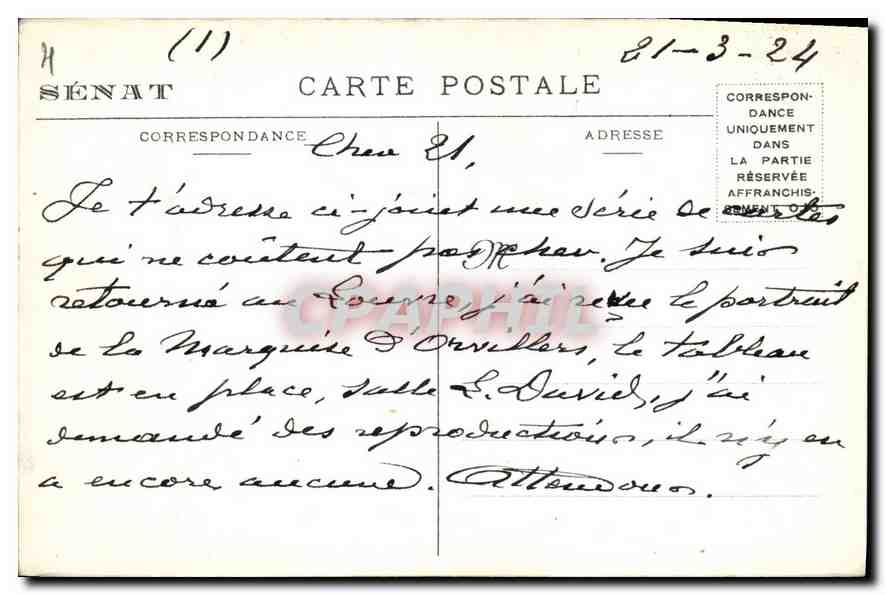 (1) 21-3-24
SÉNAT CARTE POSTALE
CORRESPONDANCE
ADRESSE
CORRESPON-
DANCE
UNIQUEMENT
DANS
LA PARTIE
RÉSERVÉE
AFFRANCHIS-
SEMENT 0,
Cher 21,
Je t'adresse ci-joint une série de cartes
qui ne coûtent pas cher. Je suis
retourné au Louvre, j'ai revu le portrait
de la Marquise d'Orvillers, le tableau
est en place, salle L. David, j'ai
demandé des reproductions, il n'y en
a encore aucune. Attendons.
CPAPHIL